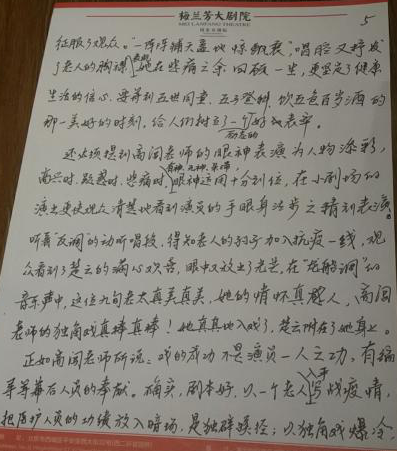 梅兰芳大剧院
MEI LANFANG THEATRE
5
征服了观众。"一阵阵铺天盖地惊飘飘"唱腔又抒发
了老人的胸襟 她在悲痛之余回放一生,更坚定了健康
生活的信心 要等到五世同堂、五子登科、饮五色百岁酒的
那一美好的时刻,给人们树立了一个好的表率。
还必须提到高闰老师的眼神表演为人物添彩,
高兴时、 悲痛时, 眼神运用十分到位,在小剧场的
演出更使观众清楚地看到演员的手眼身法步之精彩表演。
听着"反调"的动听唱段,得知老人的孙子加入抗疫一线,观
众看到了楚云的满心欢喜,眼中又放出了光芒,在"龙船调"的
音乐声中,这位九旬老太真美真美,她的情怀真感人,高闰
老师的独角戏真棒真棒!她真真地入戏了,楚云附在了她身上。
正如高闰老师所说:戏的成功不是演员一人之功,有编
导等幕后人员的奉献。确实,剧本好,以一个老人入手写战疫情,
把医护人员的功绩放入暗场,是独辟蹊径;以独角戏爆冷,